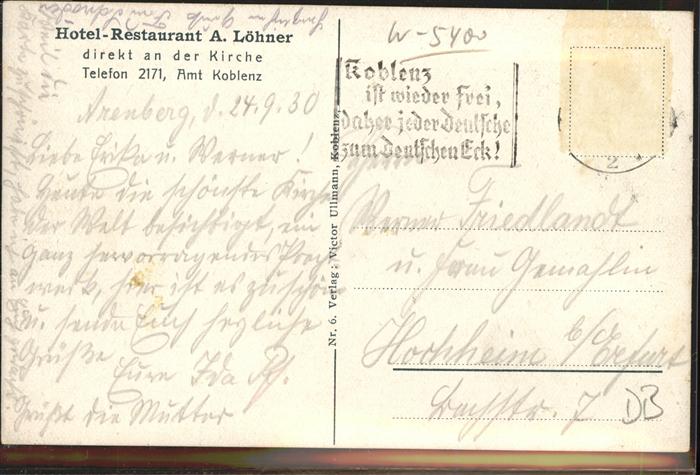 Hotel-Restaurant A. Löhner
direkt an der Kirche
Telefon 2171, Amt Koblenz
Arenberg, d. 24.9.30
Liebe Erika u. Werner!
Heute die schönste Kirche
der Welt besichtigt, ein
ganz hervorragendes Pracht
werk, hier ist es zu schön
u. sende Euch herzliche
Grüße
Eure Ida
Grüßt die Mutter
Nr. 6. Verlag: Victor Ullmann, Koblenz
W-5400
Koblenz
ist wieder frei,
daher jeder Deutsche
zum Deutschen Eck!
2
Werner Friedlandt
u. Frau Gemahlin
Hochheim b/Erfurt
Bachstr. 7
DB